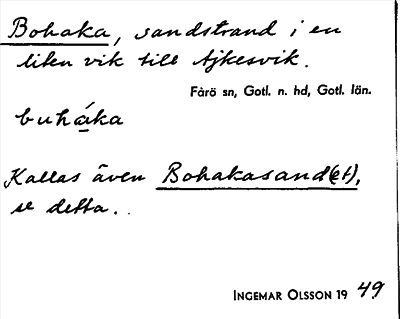 Bohaka, sandstrand i en
liten vik till Ajkesvik.
Fårö sn, Gotl. n. hd, Gotl. län.
buháka
Kallas även Bohakasand(et),
se detta.
INGEMAR OLSSON 19 49